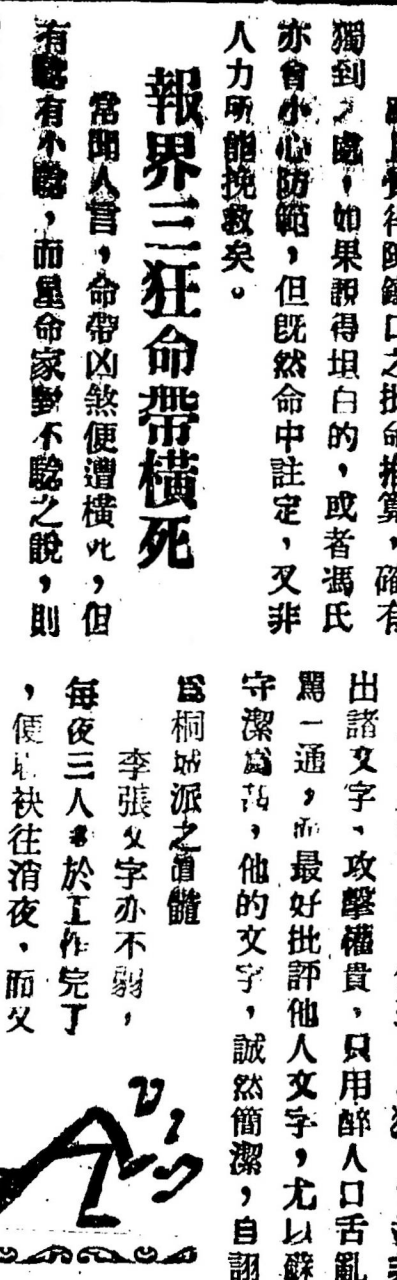 覺得陳鐵口之批命推算，確有
獨到之處，如果說得坦白的，或者馮氏
亦會小心防範，但既然命中註定，又非
人力所能挽救矣。
報界三狂命帶橫死
常聞人言，命帶凶煞便遭橫死，但
有驗有不驗，而星命家對不驗之說，則
出諸文字、攻擊權貴，只用醉人口舌亂
罵一通，而最好批評他人文字，尤以蘇
守潔為甚，他的文字，誠然簡潔，自詡
為桐城派之
李張文字亦不弱，
每夜三人多於工作完了
，便聯袂往消夜，而又